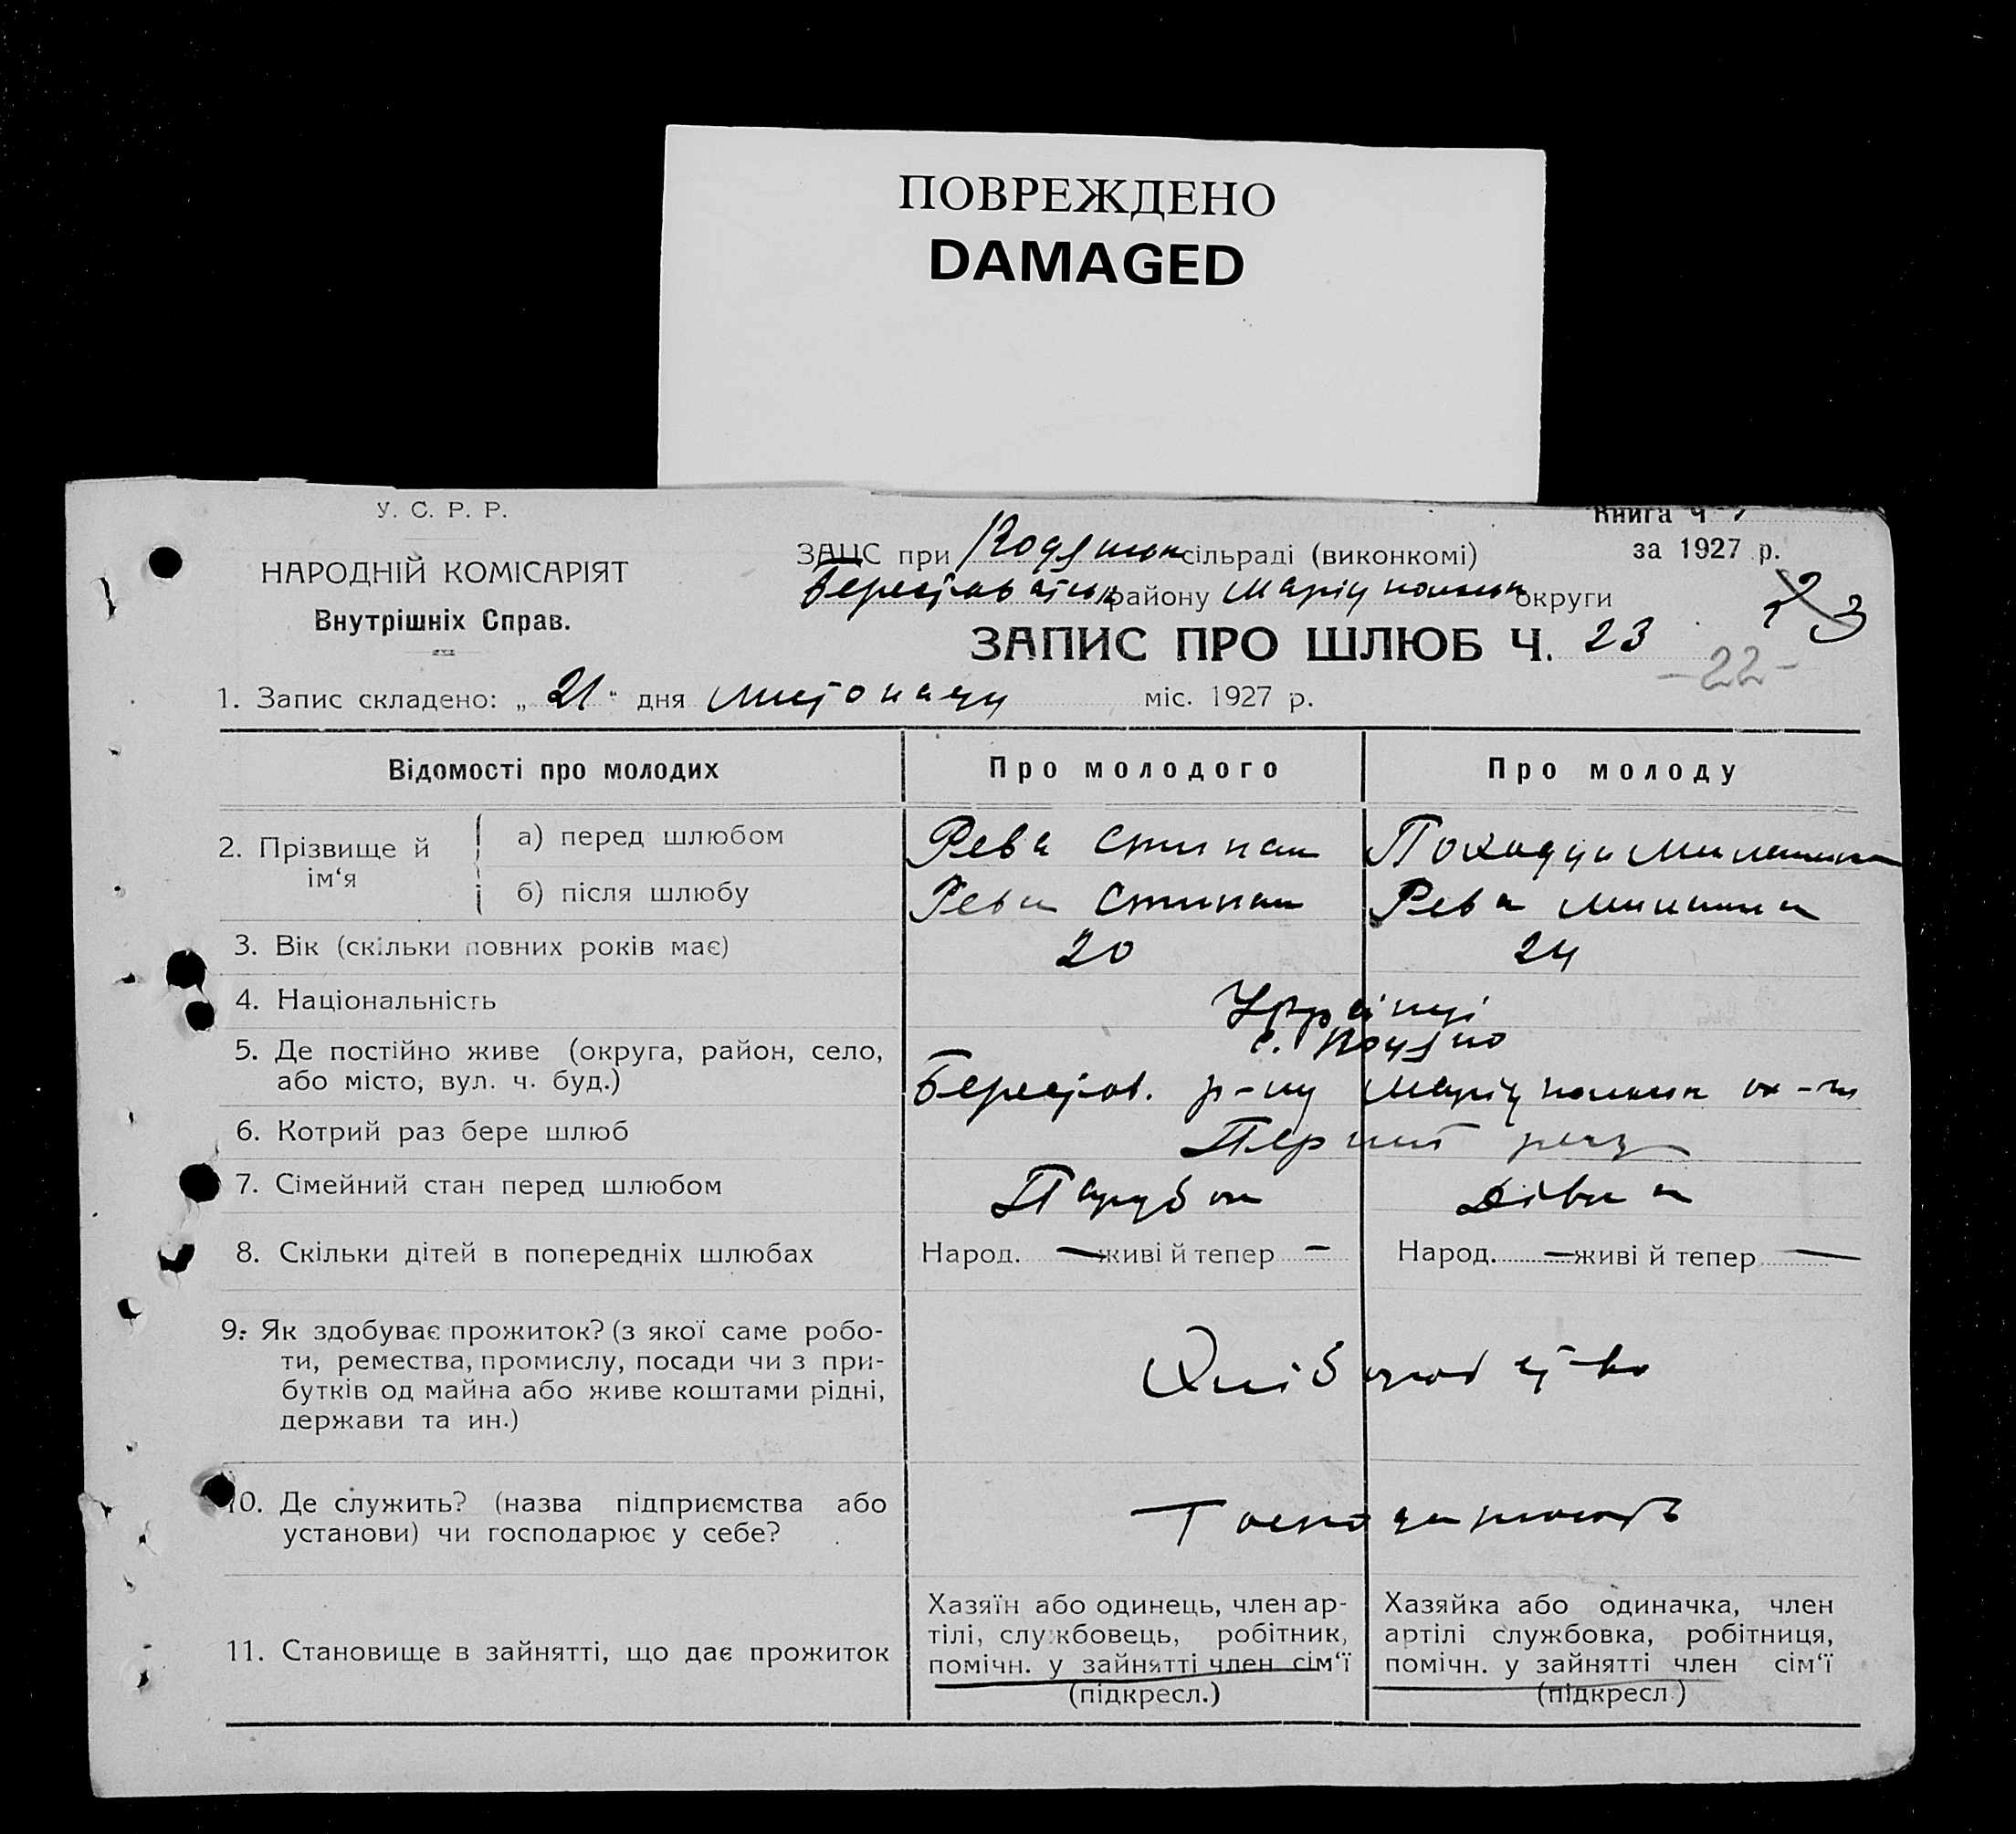 ПОВРЕЖДЕНО
DAMAGED
У. С. Р. Р.
НАРОДНІЙ КОМІСАРІЯТ
Внутрішніх Справ.
Книга ч
за 1927 р.
ЗАЦС при сільраді (виконкомі)
району округи
ЗАПИС ПРО ШЛЮБ Ч. 23
-22-
1. Запис складено: „ 21 " дня листопаду міс. 1927 р.
Відомості про молодих Про молодого Про молоду
2. Прізвище й ім'я
а) перед шлюбом Рева Степан
б) після шлюбу Рева Степан Рева
3. Вік (скільки повних років має) 20 24
4. Національність Українці
5. Де постійно живе (округа, район, село, с.
або місто, вул. ч. буд.) р-ну
6. Котрий раз бере шлюб Перший раз
7. Сімейний стан перед шлюбом Парубок Дівка
8. Скільки дітей в попередніх шлюбах Народ. — живі й тепер — Народ. — живі й тепер —
9. Як здобуває прожиток? (з якої саме робо-
ти, ремества, промислу, посади чи з при-
бутків од майна або живе коштами рідні,
держави та ин.)
Хліборобство
10. Де служить? (назва підприємства або
установи) чи господарює у себе?
Господарюють
11. Становище в зайнятті, що дає прожиток
Хазяїн або одинець, член ар-
тілі, службовець, робітник,
помічн. у зайнятті член сім'ї
(підкресл.)
Хазяйка або одиначка, член
артілі службовка, робітниця,
помічн. у зайнятті член сім'ї
(підкресл.)